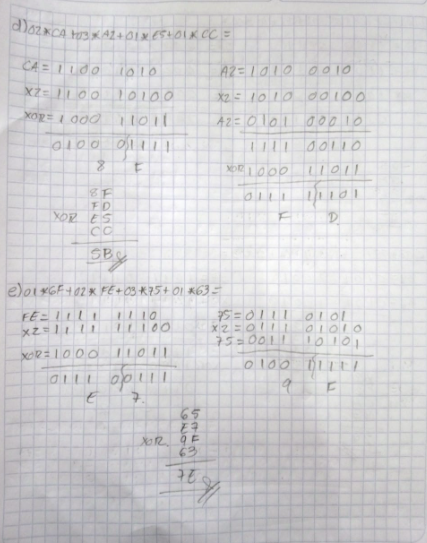 d) 02*CA+03*A2+01*E5+01*CC=
CA = 1100 1010
X2 = 1100 10100
XOR = 1000 11011
0100 01111
8 F
8F
FD
XOR E5
CC
5B
A2 = 1010 0010
X2 = 1010 00100
A2 = 0101 00010
1111 00110
XOR 1000 11011
0111 11101
F D
e) 01*6F+02*FE+03*75+01*63=
FE = 1111 1110
X2 = 1111 11100
XOR = 1000 11011
0111 00111
E 7
75 = 0111 0101
X2 = 0111 01010
75 = 0011 10101
0100 11111
9 F
65
E7
XOR 9F
63
7E